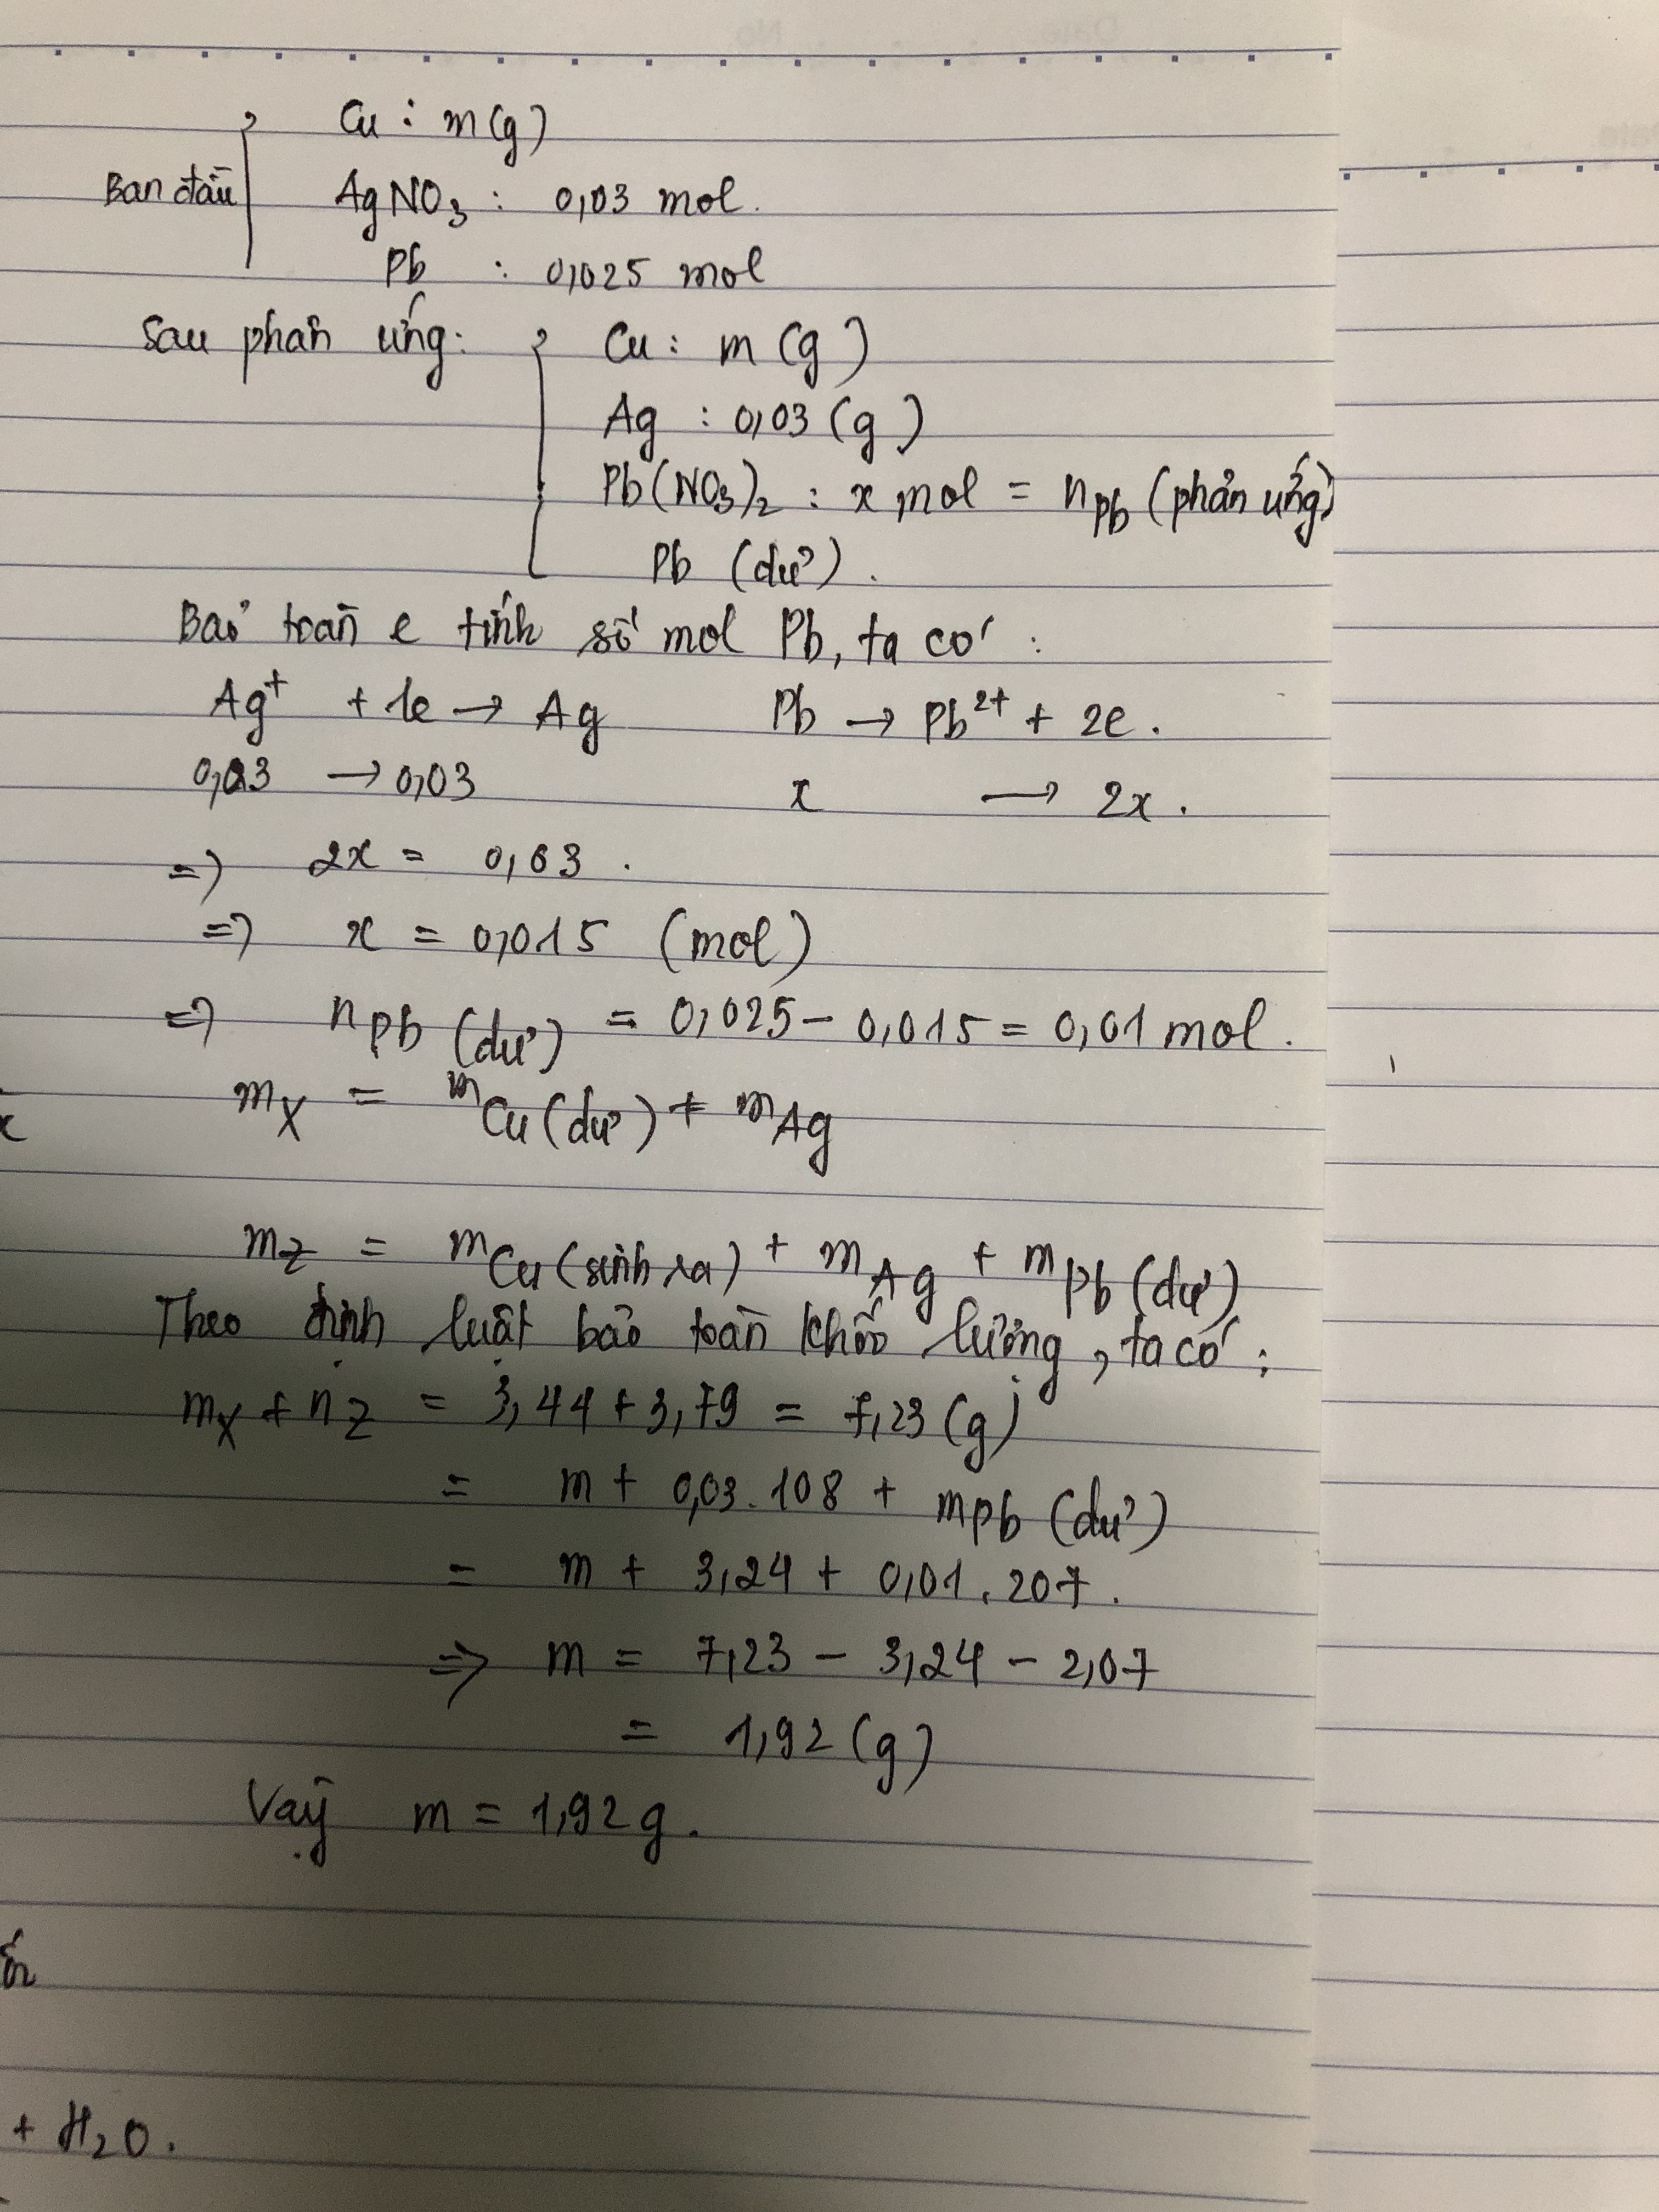 Cu : m(g)
Ban đầu AgNO3 : 0,03 mol.
Pb : 0,025 mol
Sau phản ứng: Cu : m (g)
Ag : 0,03 (g)
Pb(NO3)2 : x mol = nPb (phản ứng)
Pb (dư).
Bảo toàn e tính số mol Pb, ta có :
Ag+ + 1e → Ag Pb → Pb2+ + 2e.
0,03 → 0,03 x → 2x.
=> 2x = 0,03.
=> x = 0,015 (mol)
=> nPb (dư) = 0,025 - 0,015 = 0,01 mol.
mX = mCu (dư) + mAg
mZ = mCu (sinh ra) + mAg + mPb (dư)
Theo định luật bảo toàn khối lượng, ta có :
mX + nZ = 3,44 + 3,79 = 7,23 (g)
= m + 0,03.108 + mPb (dư)
= m + 3,24 + 0,01.207.
=> m = 7,23 - 3,24 - 2,07
= 1,92 (g)
Vậy m = 1,92 g.
+ H2O.